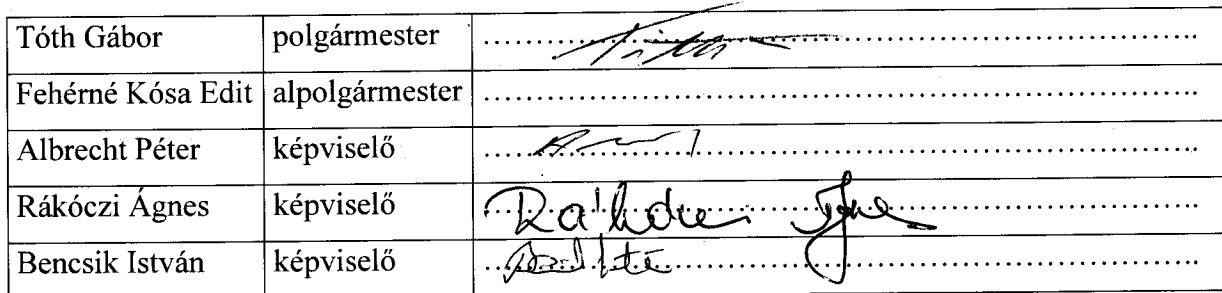 Tóth Gábor polgármester Tóth
Fehérné Kósa Edit alpolgármester
Albrecht Péter képviselő
Rákóczi Ágnes képviselő Rákóczi Ágnes
Bencsik István képviselő